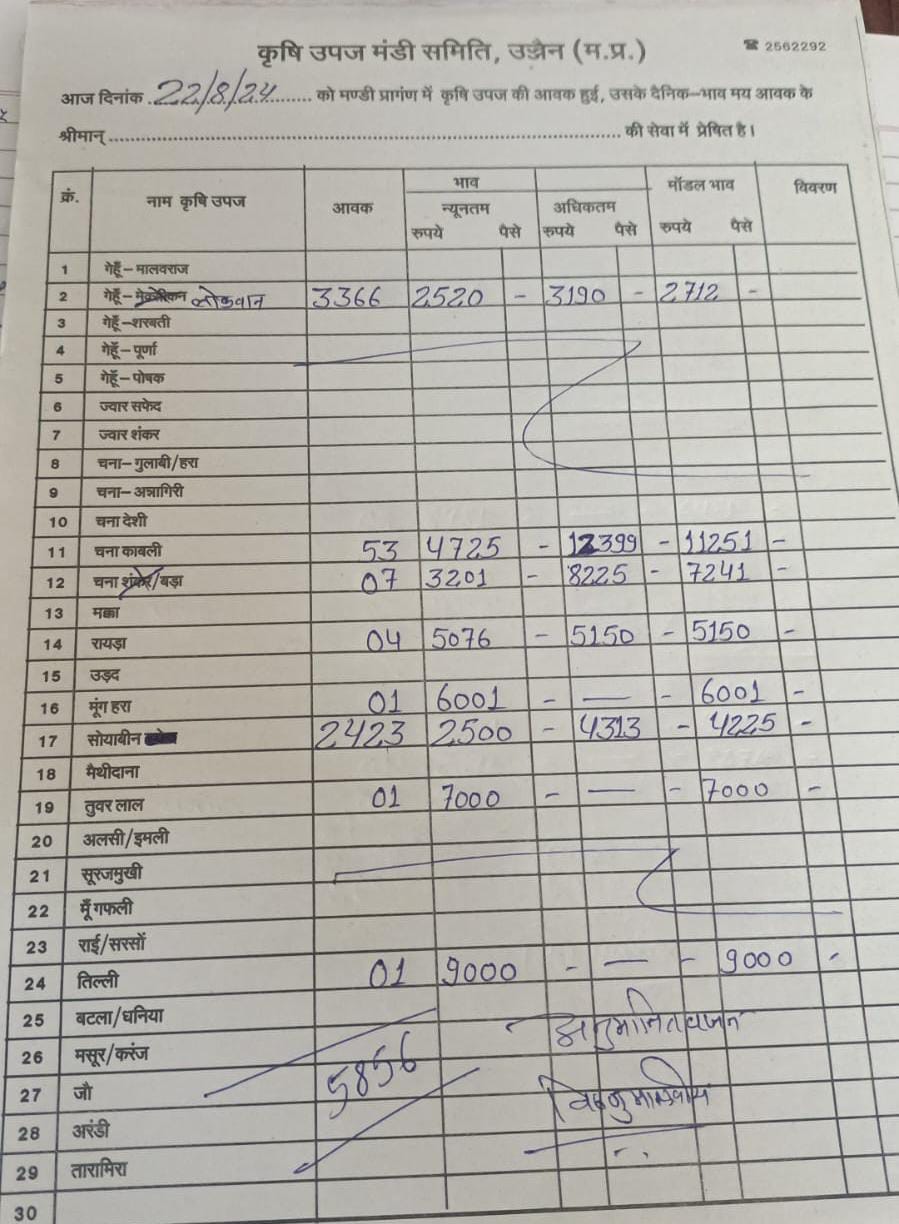 कृषि उपज मंडी समिति, उज्जैन (म.प्र.) ☎ 2562292
आज दिनांक 22/8/24 को मण्डी प्रागंण में कृषि उपज की आवक हुई, उसके दैनिक-भाव मय आवक के
श्रीमान् की सेवा में प्रेषित है।
क्रं. नाम कृषि उपज आवक भाव मॉडल भाव विवरण
न्यूनतम अधिकतम
रुपये पैसे रुपये पैसे रुपये पैसे
1 गेहूँ-मालवराज
2 गेहूँ- लोकवान 3366 2520 - 3190 - 2712 -
3 गेहूँ-शरबती
4 गेहूँ-पूर्णा
5 गेहूँ-पोषक
6 ज्वार सफेद
7 ज्वार शंकर
8 चना-गुलाबी/हरा
9 चना-अन्नागिरी
10 चना देशी
11 चना काबली 53 4725 - 12399 - 11251 -
12 चना शंकर/बड़ा 07 3201 - 8225 - 7241 -
13 मक्का
14 रायड़ा 04 5076 - 5150 - 5150 -
15 उड़द
16 मूंग हरा 01 6001 - — - 6001 -
17 सोयाबीन 2423 2500 - 4313 - 4225 -
18 मैथीदाना
19 तुवर लाल 01 7000 - — - 7000 -
20 अलसी/इमली
21 सूरजमुखी
22 मूँगफली
23 राई/सरसों
24 तिल्ली 01 9000 - — - 9000 -
25 बटला/धनिया
अनुमानित वजन
26 मसूर/करंज
5856
27 जौ
28 अरंडी
29 तारामिरा
30